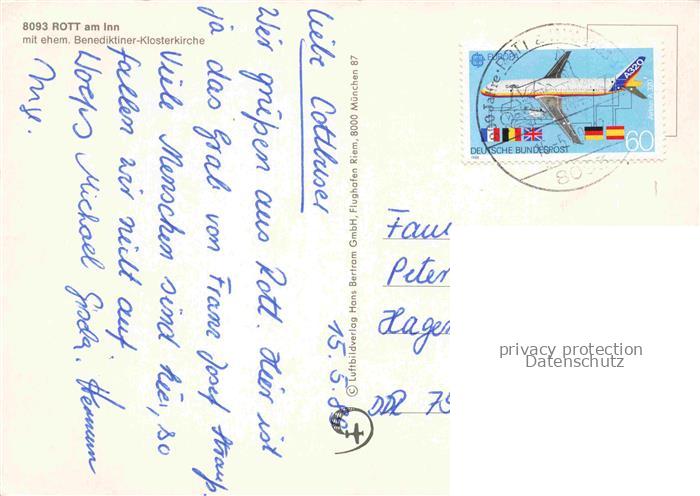 8093 ROTT am Inn
mit ehem. Benediktiner-Klosterkirche
Liebe Cottbuser
Wir grüßen aus Rott. Hier ist
ja das Grab von Franz Josef Strauß.
Viele Menschen sind hier, so
fallen wir nicht auf.
Michael Hermann
Inge.
15.5.89
© Luftbildverlag Hans Bertram GmbH, Flughafen Riem, 8000 München 87
EUROPA
A320
Airbus A 320
DEUTSCHE BUNDESPOST
60
1988
Jahre ROTT
Fam
Peter
Hagen
DDR 75
privacy protection
Datenschutz